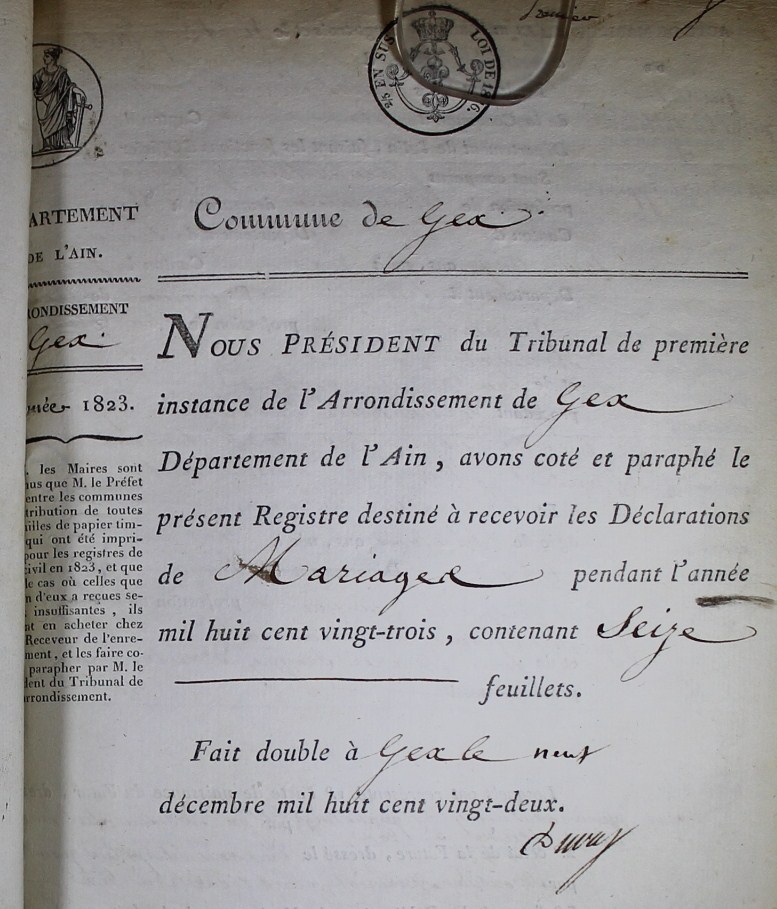 2/5 EN SUS LOI DE 1816.
ARTEMENT
DE L'AIN.
RONDISSEMENT
Gex
née 1823.
les Maires sont
us que M. le Préfet
entre les communes
tribution de toutes
illes de papier tim-
qui ont été impri-
pour les registres de
ivil en 1823, et que
le cas où celles que
n d'eux a reçues se-
insuffisantes, ils
nt en acheter chez
Receveur de l'enre-
ment, et les faire co-
parapher par M. le
dent du Tribunal de
rrondissement.
Commune de Gex
NOUS PRÉSIDENT du Tribunal de première
instance de l'Arrondissement de Gex
Département de l'Ain, avons coté et paraphé le
présent Registre destiné à recevoir les Déclarations
de Mariages pendant l'année
mil huit cent vingt-trois, contenant Seize
feuillets.
Fait double à Gex le neuf
décembre mil huit cent vingt-deux.